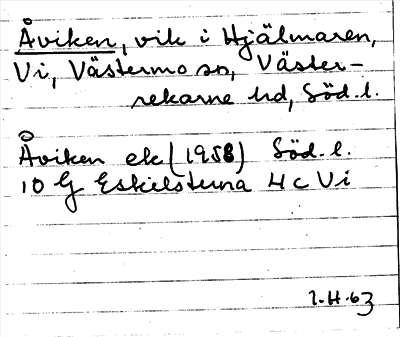 Åviken, vik i Hjälmaren,
Vi, Västermo sn, Väster-
rekarne hd, Söd. l.
Åviken ek (1958) Söd. l.
10 G Eskilstuna 4 c Vi
1.H.63